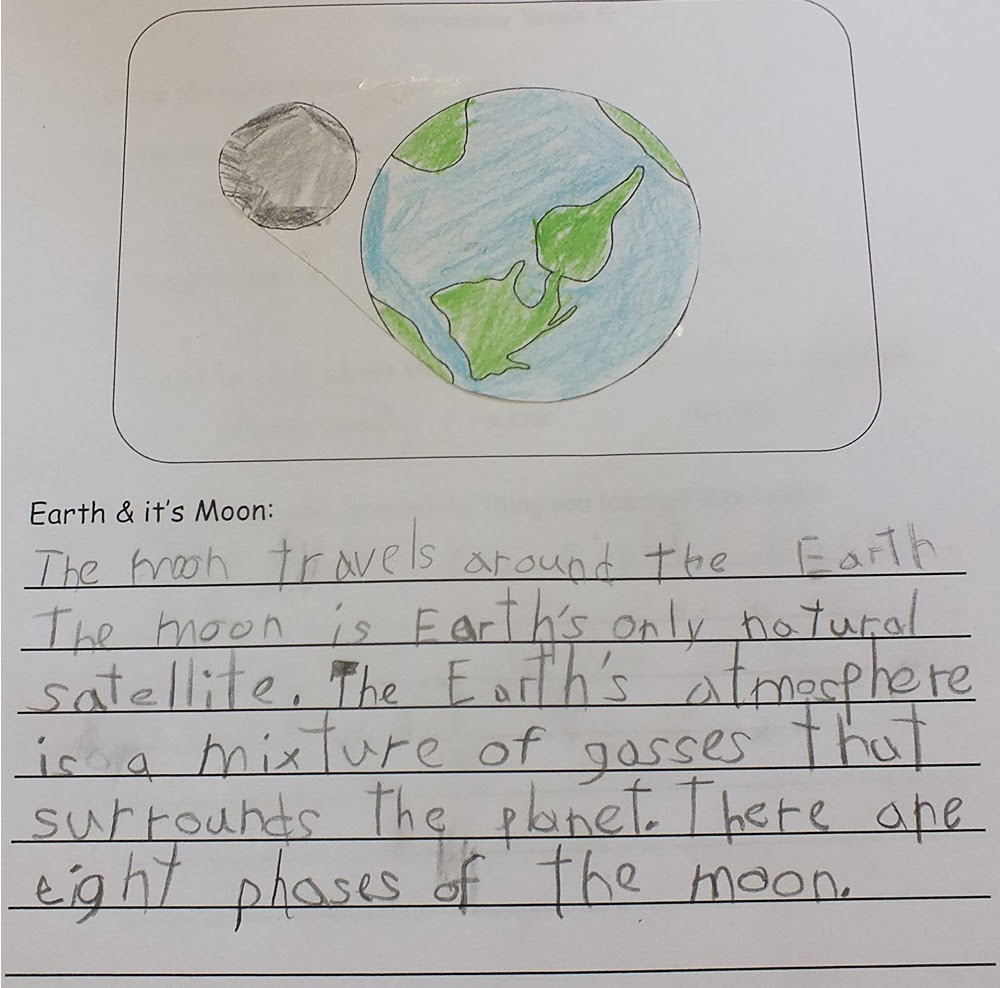 Earth & it's Moon:
The moon travels around the Earth
The moon is Earth's only natural
satellite. The Earth's atmosphere
is a mixture of gasses that
surrounds the planet. There are
eight phases of the moon.